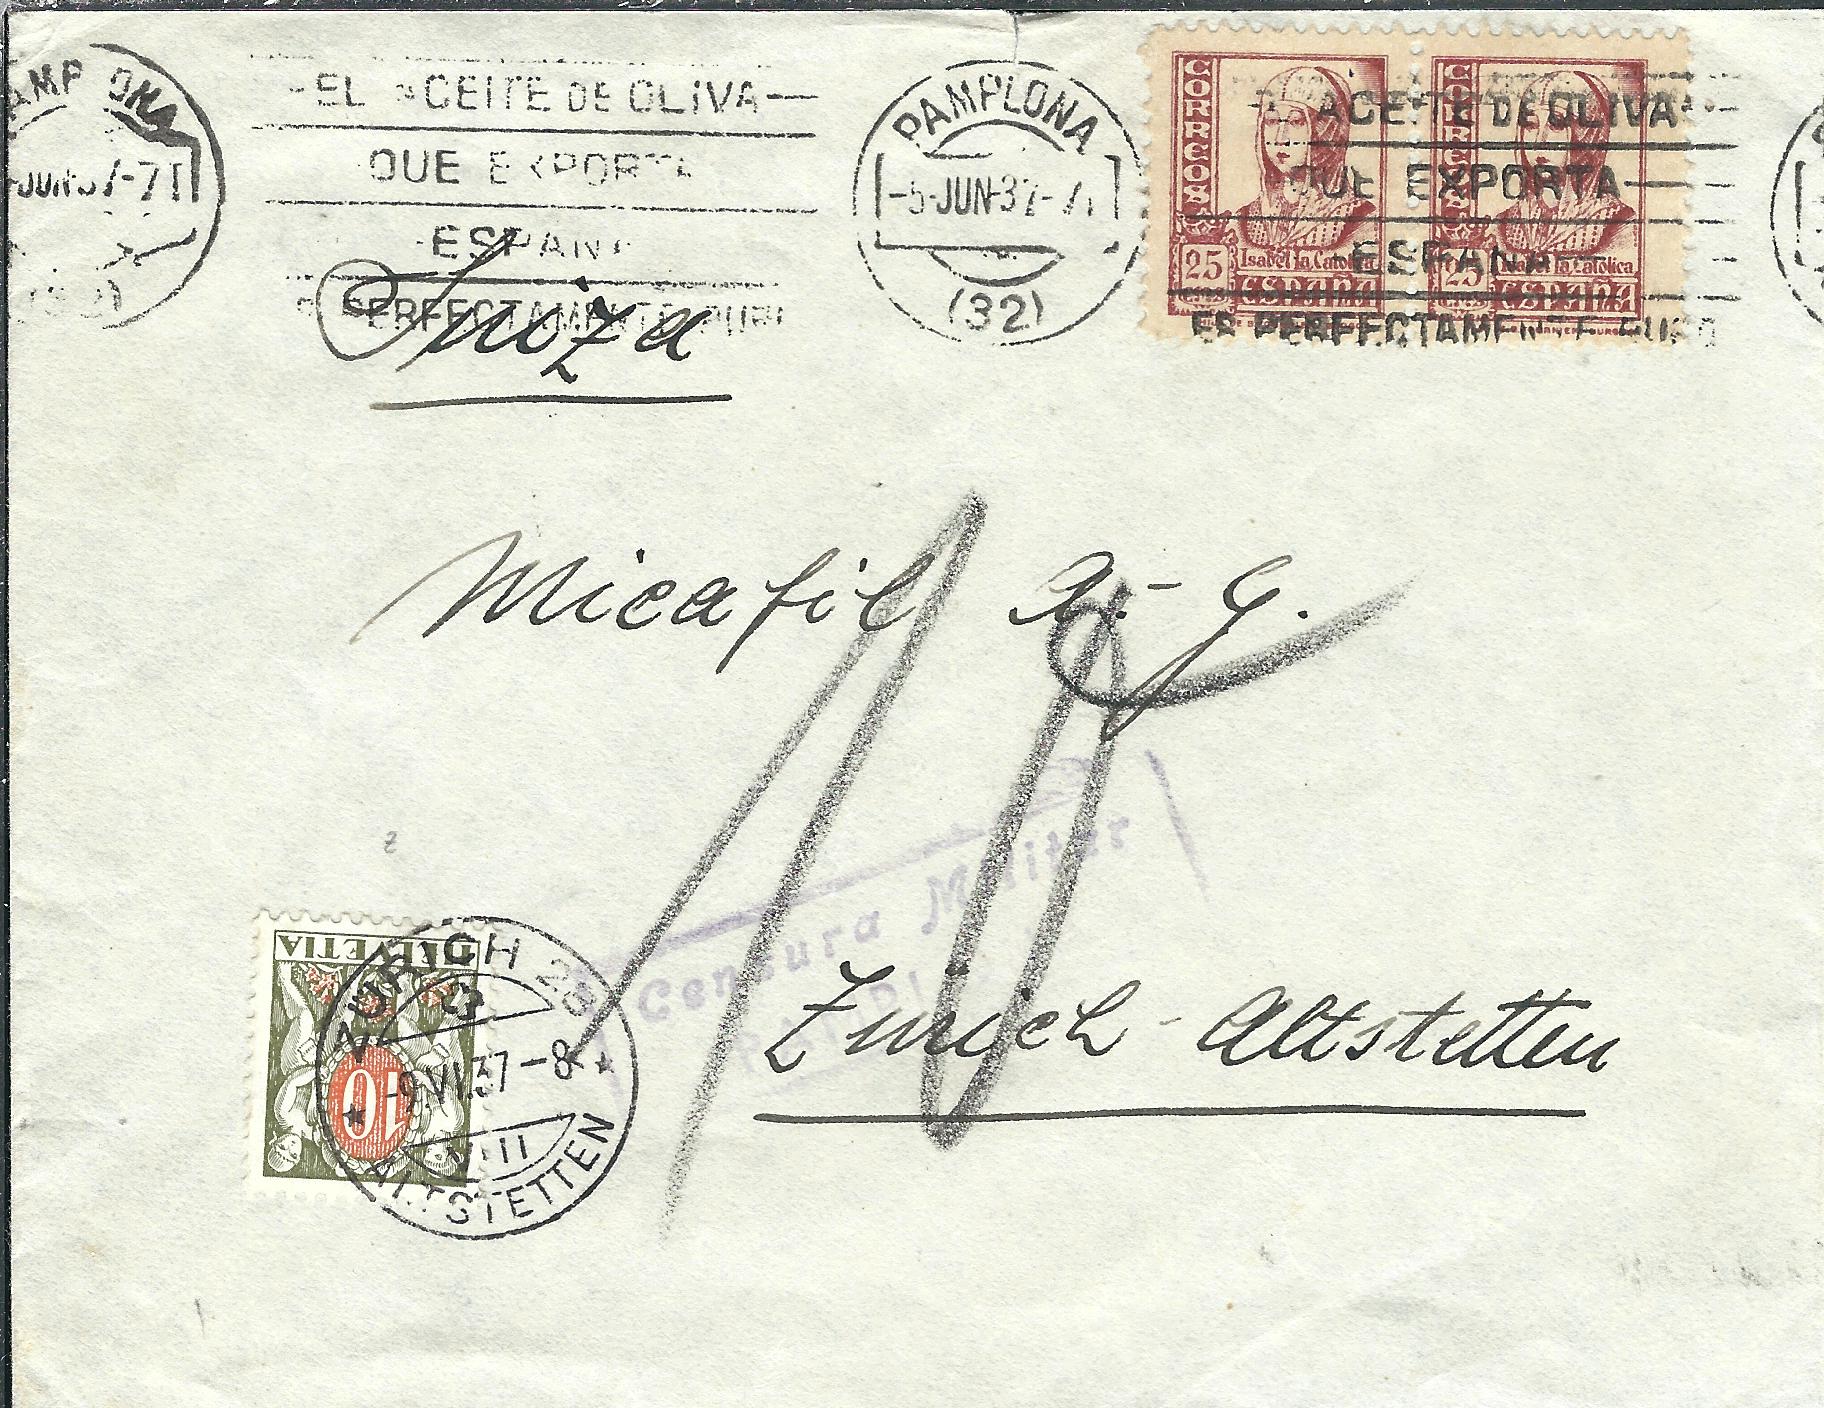 EL ACEITE DE OLIVA
QUE EXPORTA
ESPAÑA
PERFECTAMENTE PUR
PAMPLONA
-5-JUN-37-7T
(32)
CORREOS
25
CTS
Isabel la Católica
ESPAÑA
CORREOS
25
CTS
Isabel la Católica
ESPAÑA
ACEITE DE OLIVA
QUE EXPORTA
ESPAÑA
ES PERFECTAMENTE PURO
PAMPLONA
-JUN-37-7T
Suiza
Micafil A.-G.
10
Censura Militar
Zürich-Altstetten
HELVETIA
10
ZÜRICH 25
-9.VI.37-8
ALTSTETTEN